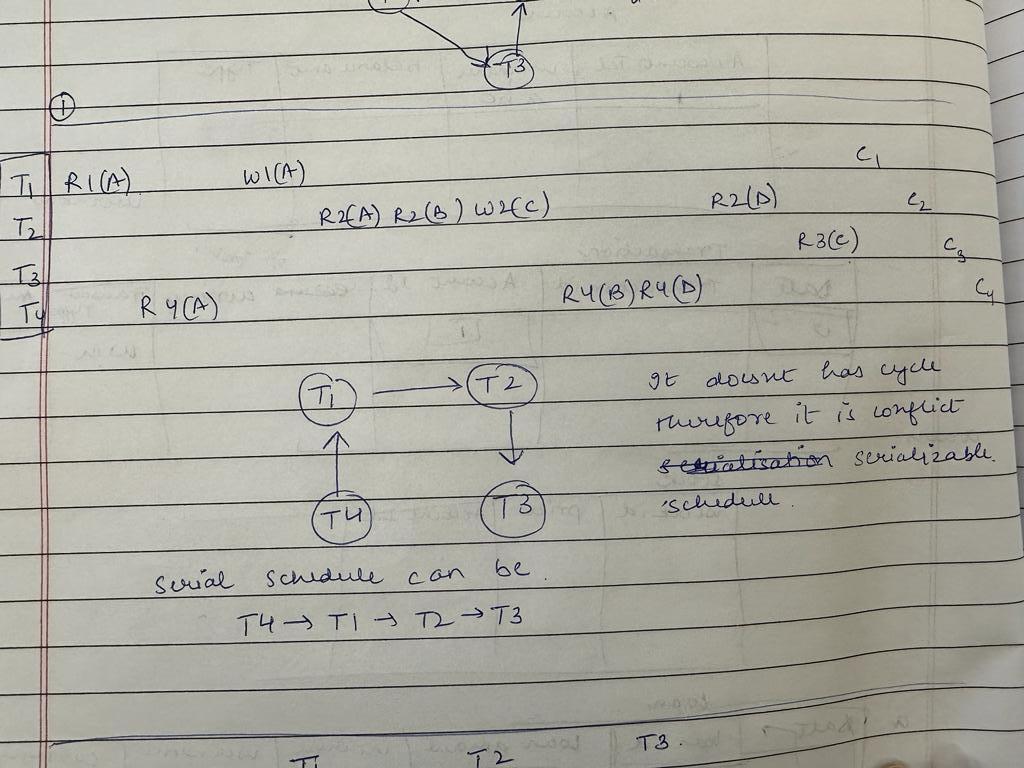 T3
①
T1 R1(A) W1(A) C1
T2 R2(A) R2(B) W2(C) R2(D) C2
T3 R3(C) C3
T4 R4(A) R4(B) R4(D) C4
T1 → T2
T4 T3
It doesnt has cycle
therefore it is conflict
serialisation serializable.
schedule.
Serial schedule can be.
T4 → T1 → T2 → T3
T1 T2 T3.